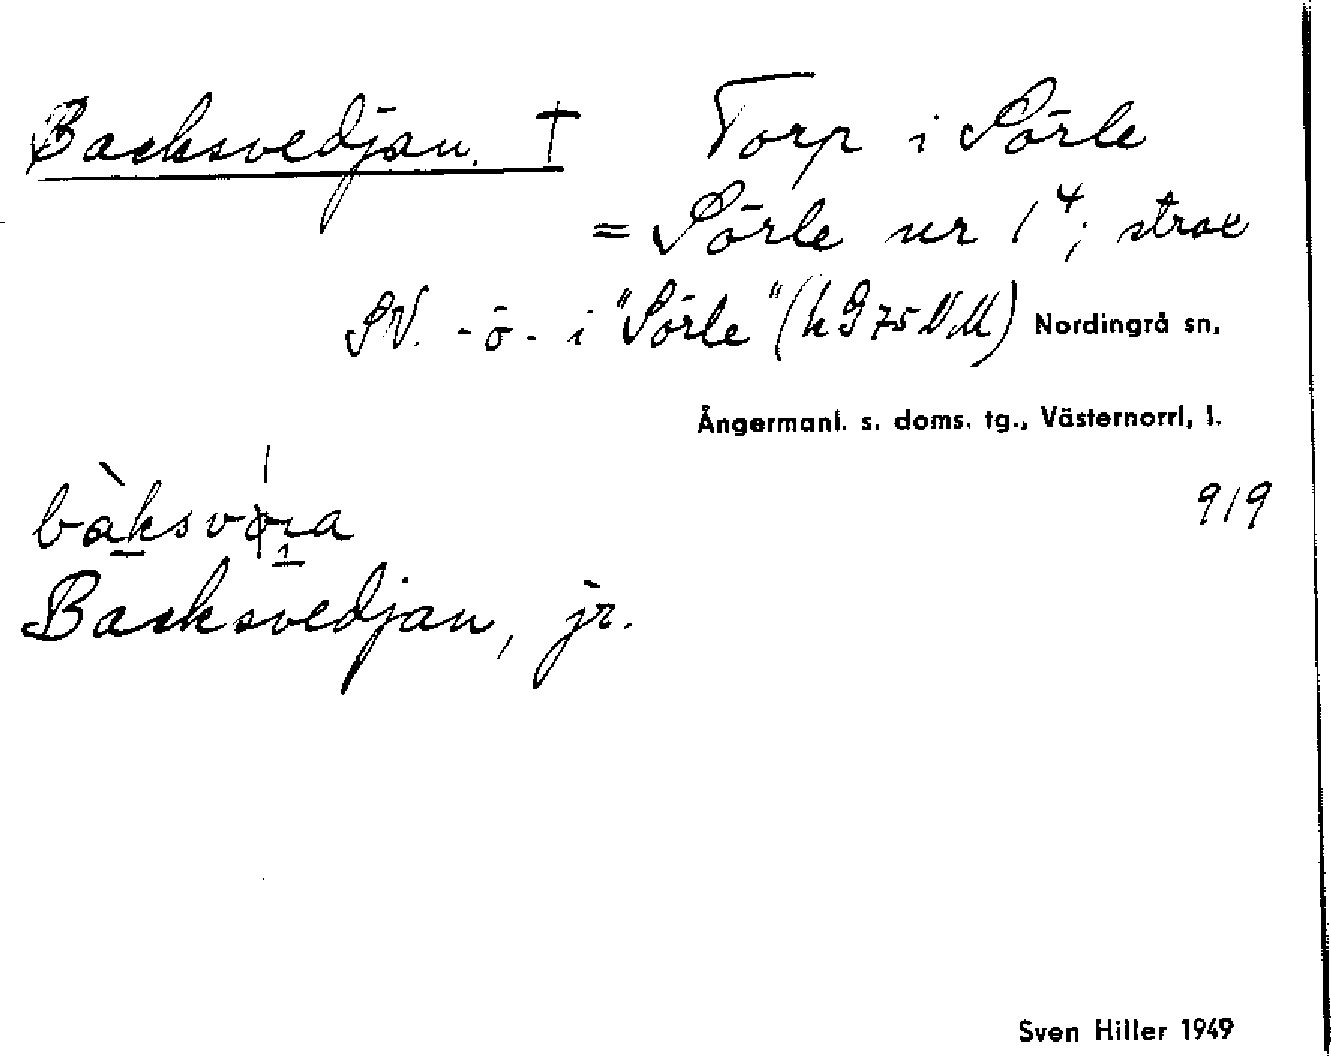 Backsvedjan. † Torp i Sörle
= Sörle nr 1⁴; strax
SV. -ö- i "Sörle" (h 9 75 N M) Nordingrå sn,
Ångermanl. s. doms. tg., Västernorrl, l.
919
Backsvedjan, jr.
Sven Hiller 1949